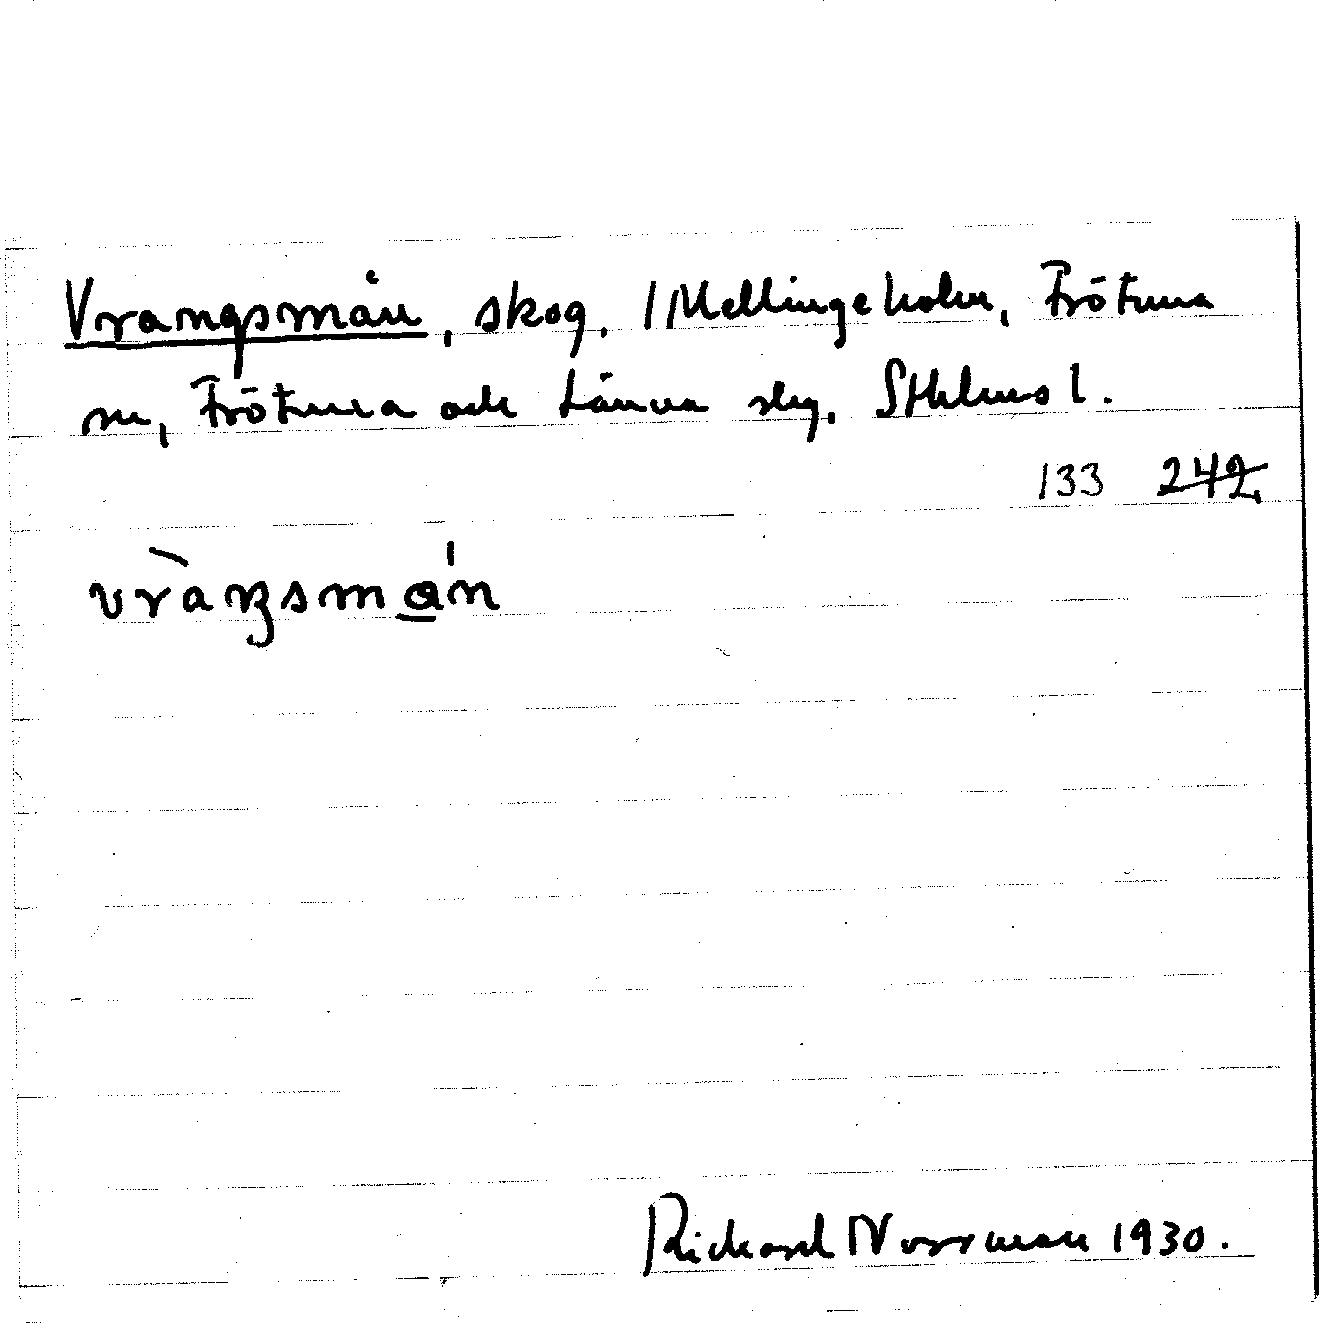 Vrangsmån, skog, / Mellingeholm, Frötuna
sn, Frötuna och Länna slg, Sthlms l.
133 242
vràŋsmɑ́n
Rickard Norrman 1930.